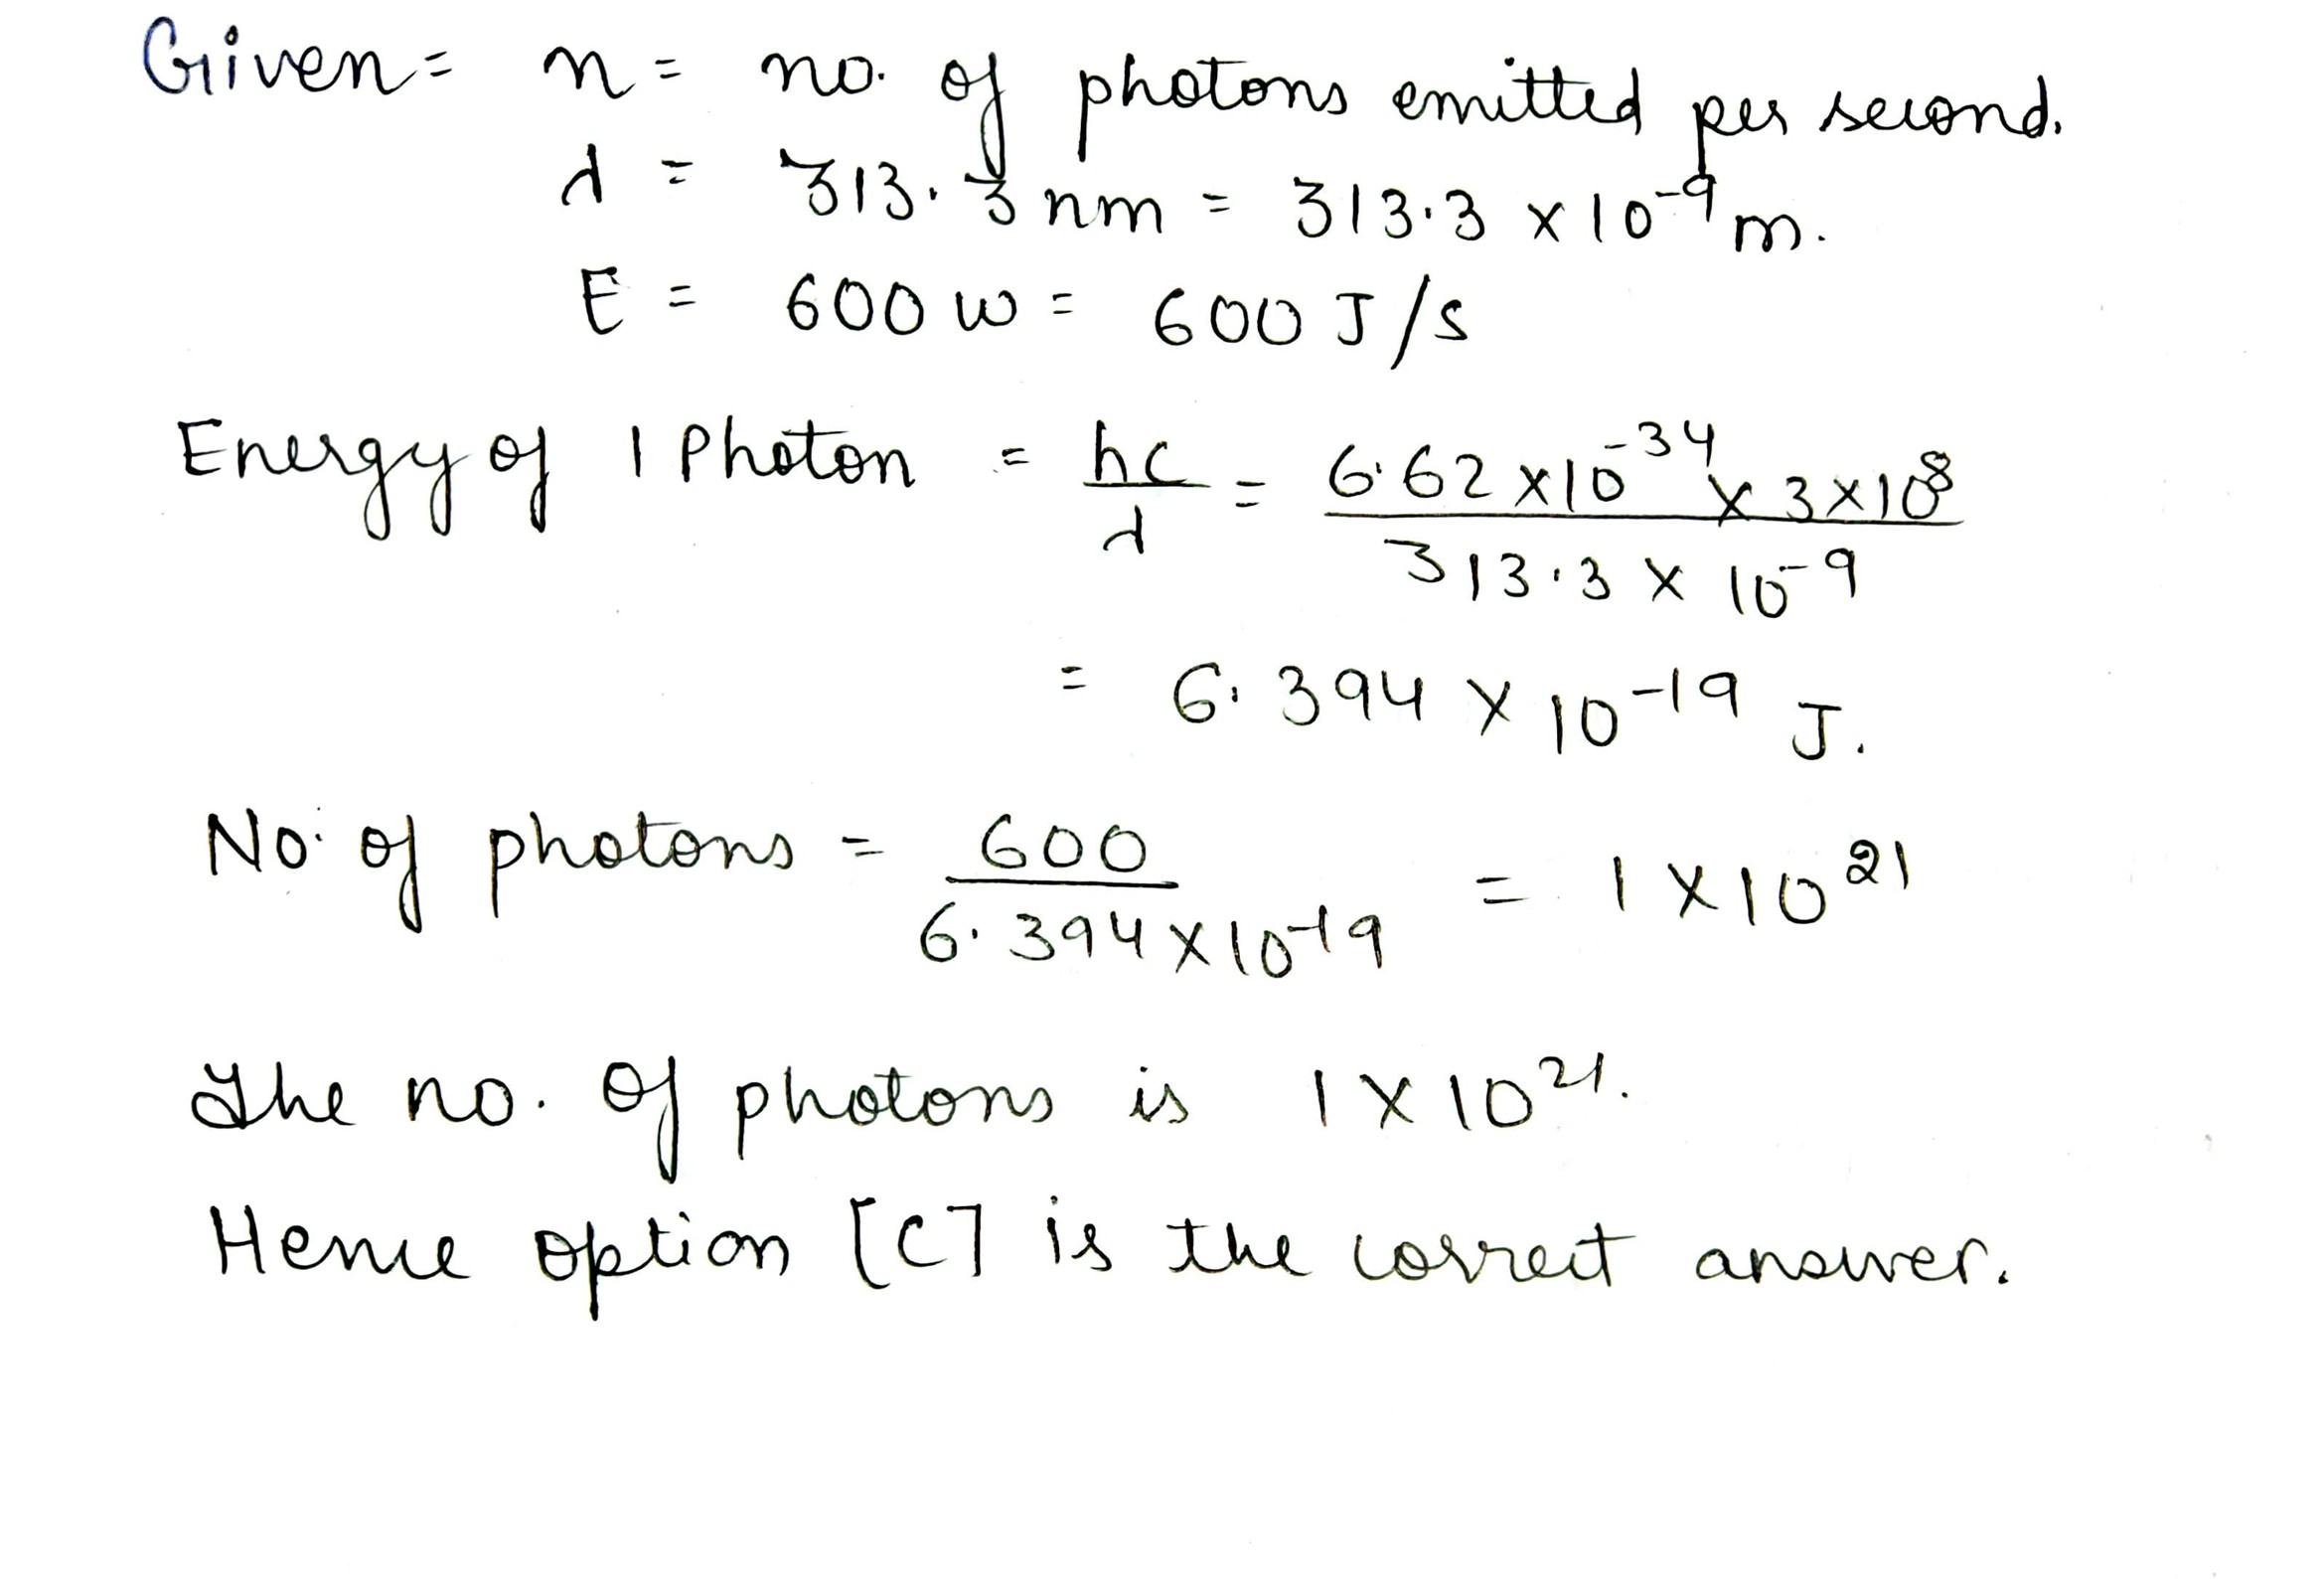 Given = n = no. of photons emitted per second.
λ = 313.3 nm = 313.3 × 10⁻⁹ m.
E = 600 W = 600 J/s
Energy of 1 Photon = hc/λ = 6.62 × 10⁻³⁴ × 3 × 10⁸ / 313.3 × 10⁻⁹
= 6.394 × 10⁻¹⁹ J.
No. of photons = 600 / 6.394 × 10⁻¹⁹ = 1 × 10²¹
The no. of photons is 1 × 10²¹.
Hence option [C] is the correct answer.